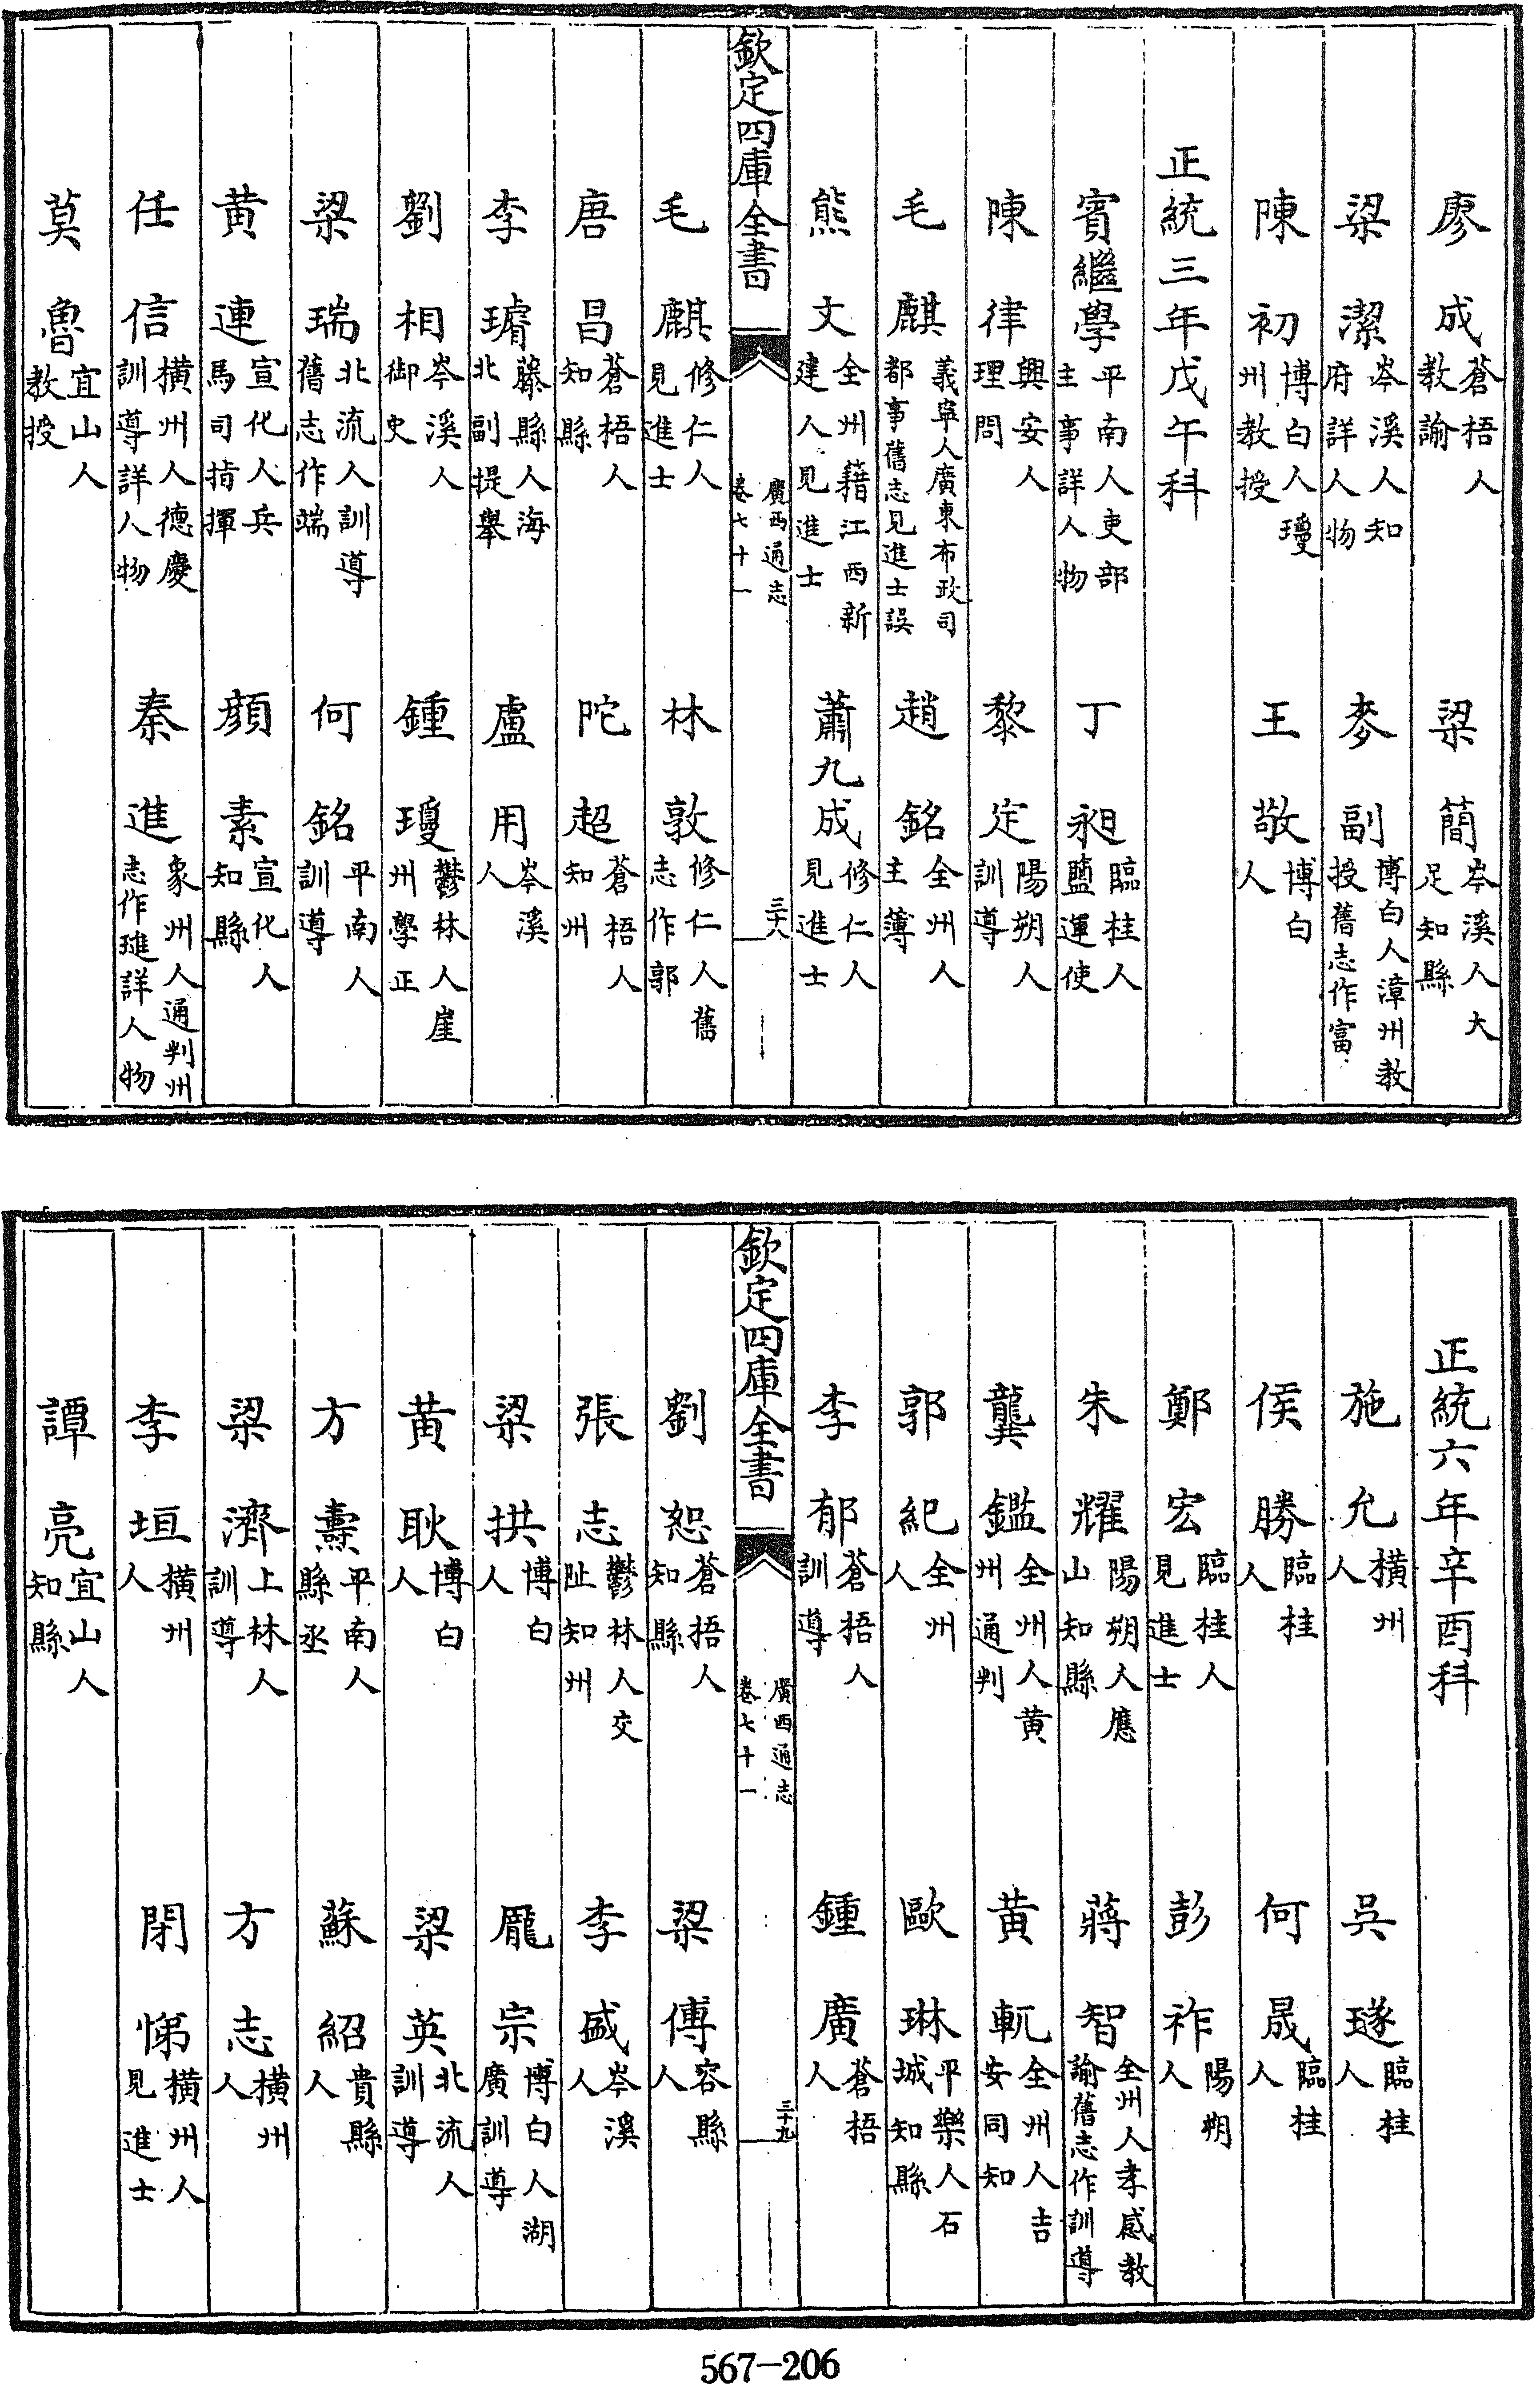 廖成蒼梧人教諭　梁簡岑溪人大足知縣
梁潔岑溪人知府詳人物　麥副博白人漳州教授舊志作富
陳初博白人瓊州教授　王敬博白人
正統三年戊午科
賓繼學平南人吏部主事詳人物　丁昶臨桂人鹽運使
陳律興安人理問　黎定陽朔人訓導
毛麒義寧人廣東布政司都事舊志見進士誤　趙銘全州人主薄
熊文全州籍江西新建人見進士　蕭九成修仁人見進士
欽定四庫全書　廣西通志卷七十一　三十八
毛麒修仁人見進士　林敦修仁人舊志作郭
唐昌蒼梧人知縣　陀超蒼梧人知州
李璿藤縣人海北副提舉　盧用岑溪人
劉相岑溪人御史　鍾瓊鬱林人崖州學正
梁瑞北流人訓導舊志作端　何銘平南人訓導
黃連宣化人兵馬司指揮　顏素宣化人知縣
任信橫州人德慶訓導詳人物　秦進象州人通判州志作璡詳人物
莫魯宜山人教授
正統六年辛酉科
施允橫州人　吳璲臨桂人
侯勝臨桂人　何晟臨桂人
鄭宏臨桂人見進士　彭祚陽朔人
朱耀陽朔人應山知縣　蔣智全州人孝感教諭舊志作訓導
龔鑑全州人黃州通判　黃軏全州人吉安同知
郭紀全州人　歐琳平樂人石城知縣
李郁蒼梧人訓導　鍾廣蒼梧人
欽定四庫全書　廣西通志卷七十一　三十九
劉恕蒼梧人知縣　梁傳容縣人
張志鬱林人交阯知州　李盛岑溪人
梁拱博白人　龎宗博白人湖廣訓導
黃耿博白人　梁英北流人訓導
方燾平南人縣丞　蘇紹貴縣人
梁濟上林人訓導　方志橫州人
李垣橫州人　閉悌橫州人見進士
譚亮宜山人知縣
567-206